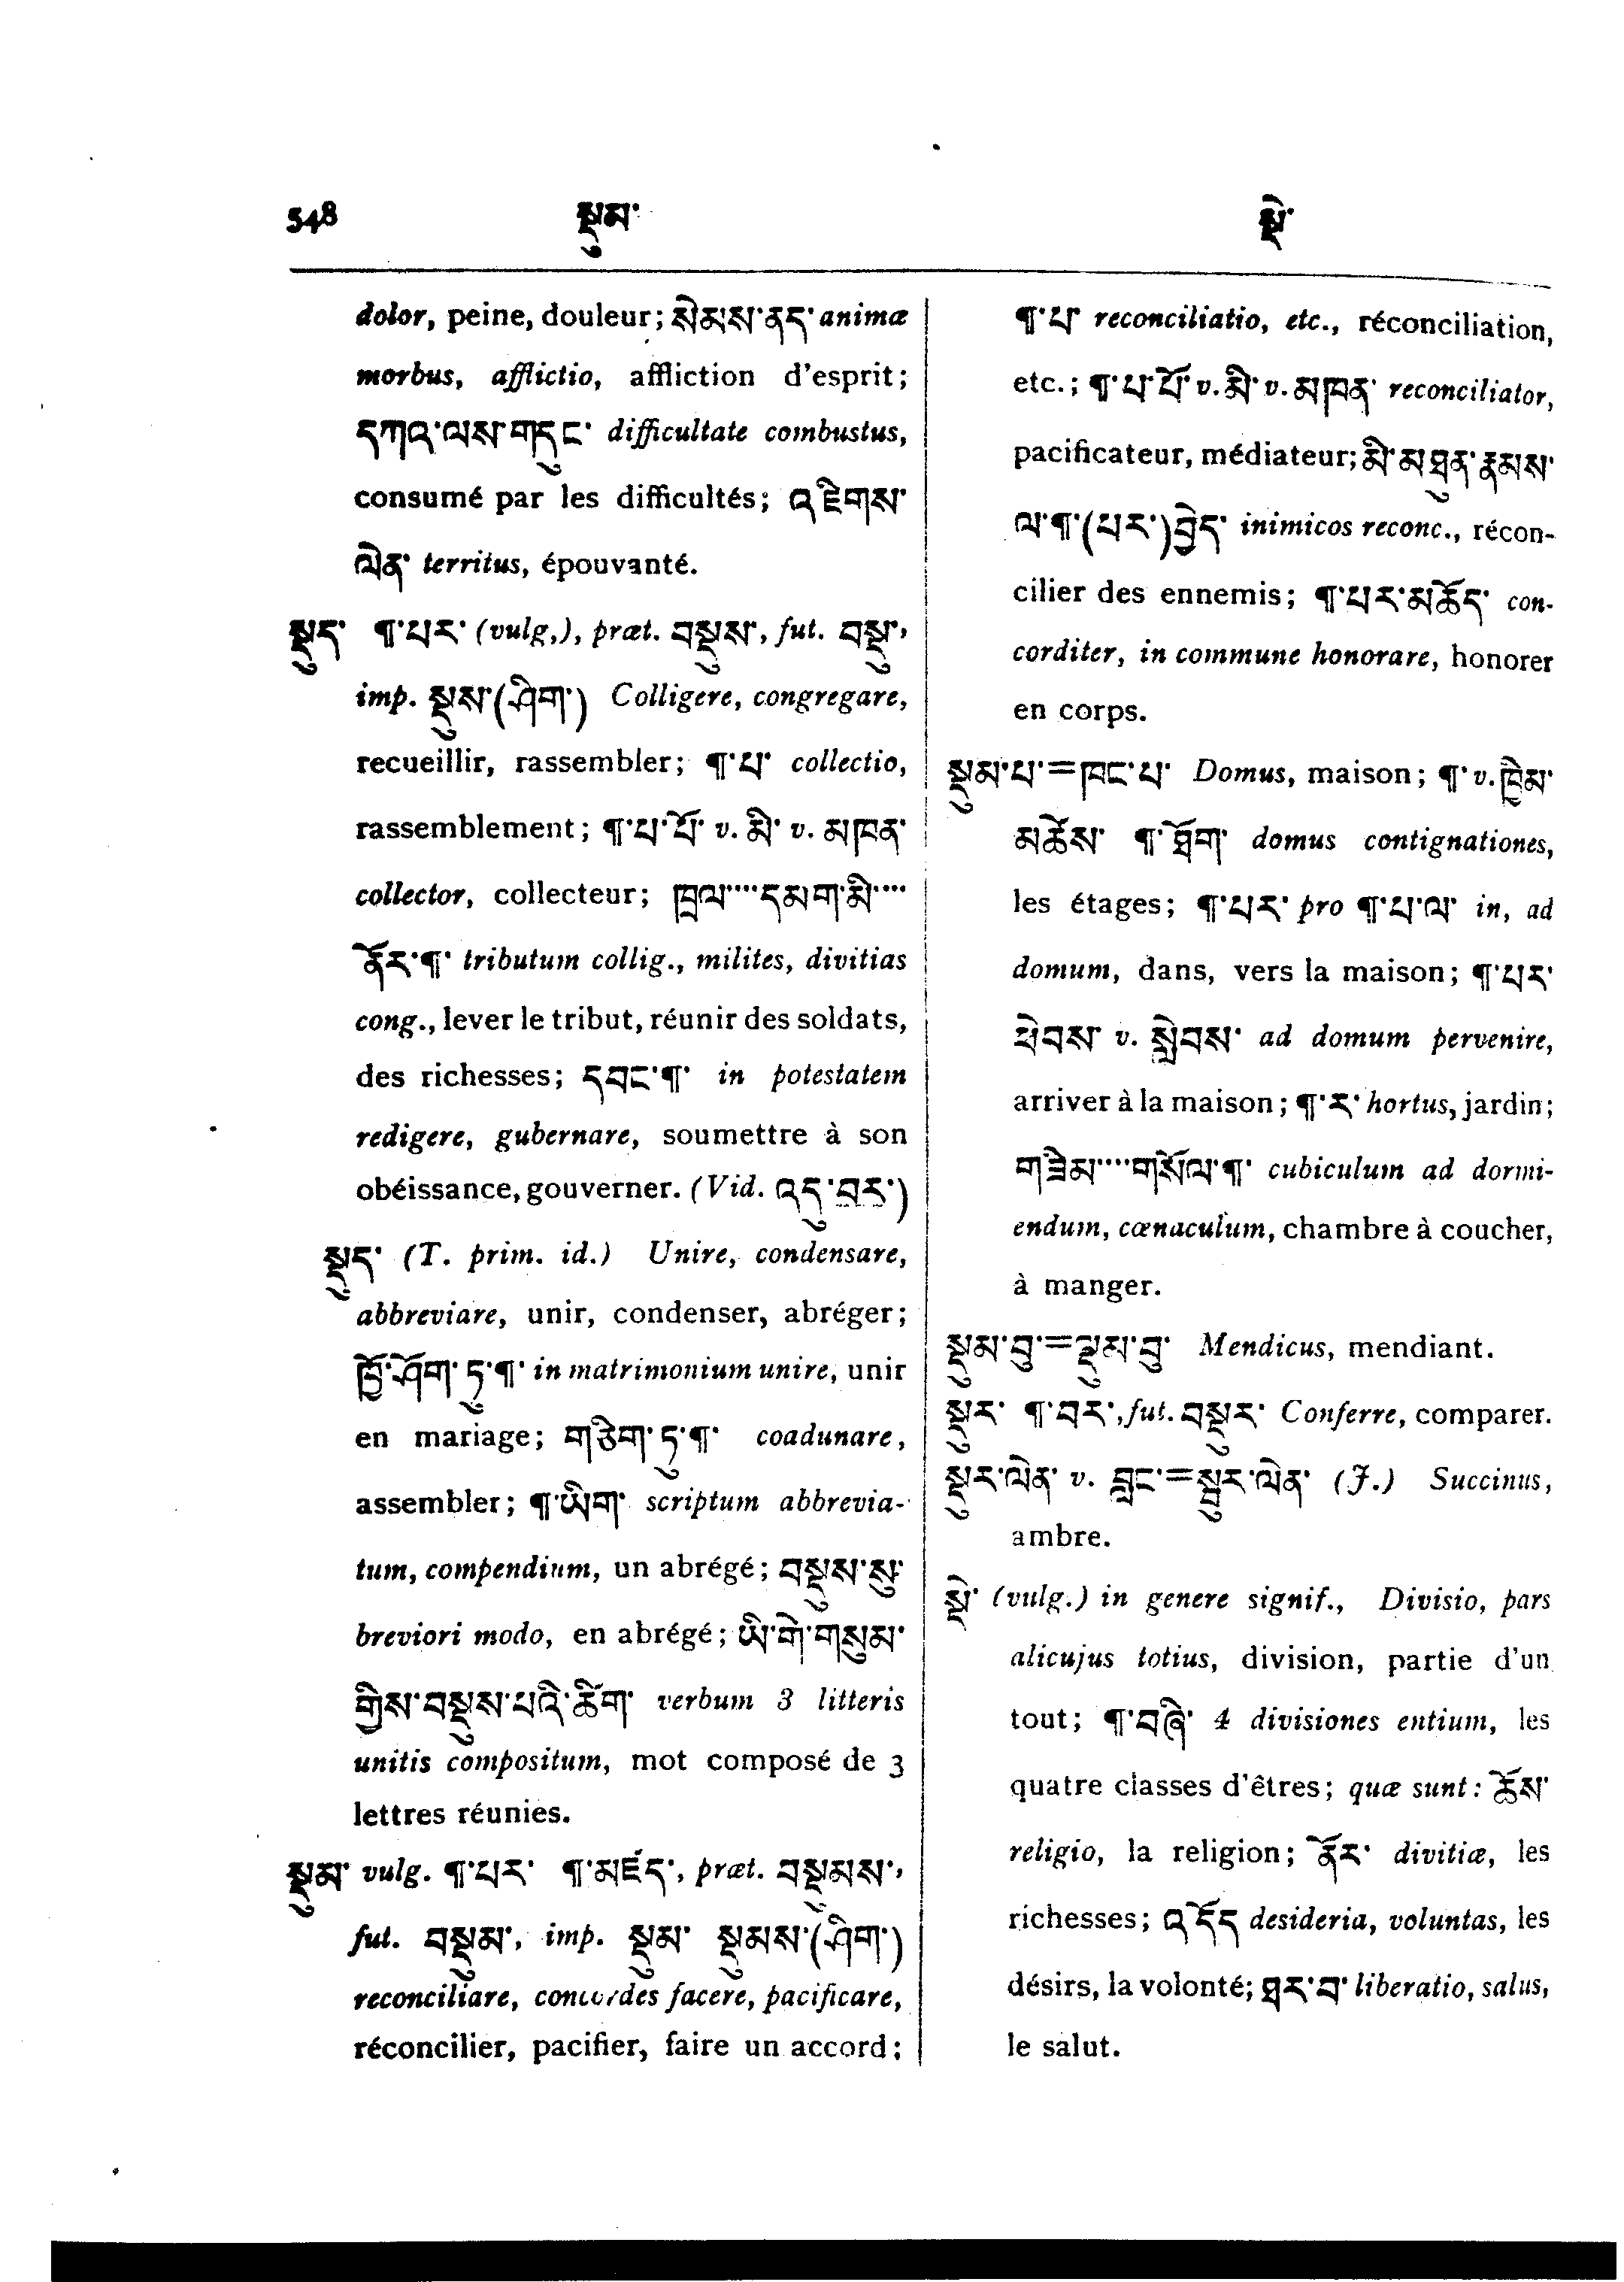 548 སྡུམ་ སྡེ་
dolor, peine, douleur; སེམས་ནད་ animæ
morbus, afflictio, affliction d'esprit;
དཀའ་ལས་གདུང་ difficultate combustus,
consumé par les difficultés; འཇིགས་
ལེན་ territus, épouvanté.
སྡུད་ ¶་པར་ (vulg.), præt. བསྡུས་, fut. བསྡུ་,
imp. སྡུས་(ཤིག་) Colligere, congregare,
recueillir, rassembler; ¶་པ་ collectio,
rassemblement; ¶་པ་པོ་ v. མི་ v. མཁན་
collector, collecteur; ཁྲལ་···དམག་མི་···
ནོར་¶་ tributum collig., milites, divitias
cong., lever le tribut, réunir des soldats,
des richesses; དབང་¶་ in potestatem
redigere, gubernare, soumettre à son
obéissance, gouverner. (Vid. འདུ་བར་)
སྡུད་ (T. prim. id.) Unire, condensare,
abbreviare, unir, condenser, abréger;
ཁྱོ་ཤོག་ཏུ་¶་ in matrimonium unire, unir
en mariage; གཅིག་ཏུ་¶་ coadunare,
assembler; ¶་ཡིག་ scriptum abbrevia-
tum, compendium, un abrégé; བསྡུས་སུ་
breviori modo, en abrégé; ཡི་གེ་གསུམ་
གྱིས་བསྡུས་པའི་ཚིག་ verbum 3 litteris
unitis compositum, mot composé de 3
lettres réunies.
སྡུམ་ vulg. ¶་པར་ ¶་མཛད་, præt. བསྡུམས་,
fut. བསྡུམ་, imp. སྡུམ་ སྡུམས་(ཤིག་)
reconciliare, concordes facere, pacificare,
réconcilier, pacifier, faire un accord;
¶་པ་ reconciliatio, etc., réconciliation,
etc.; ¶་པ་པོ་ v. མི་ v. མཁན་ reconciliator,
pacificateur, médiateur; མི་མཐུན་རྣམས་
ལ་¶་(པར་)བྱེད་ inimicos reconc., récon-
cilier des ennemis; ¶་པར་མཆོད་ con-
corditer, in commune honorare, honorer
en corps.
སྡུམ་པ་=ཁང་པ་ Domus, maison; ¶་ v. ཁྱིམ་
མཚེས་ ¶་ཐོག་ domus contignationes,
les étages; ¶་པར་ pro ¶་པ་ལ་ in, ad
domum, dans, vers la maison; ¶་པར་
ཕེབས་ v. སླེབས་ ad domum pervenire,
arriver à la maison; ¶་ར་ hortus, jardin;
གཟིམ་···གསོལ་¶་ cubiculum ad dormi-
endum, cœnaculum, chambre à coucher,
à manger.
སྡུམ་བུ་=ལྡུམ་བུ་ Mendicus, mendiant.
སྡུར་ ¶་བར་, fut. བསྡུར་ Conferre, comparer.
སྡུར་ལེན་ v. བླང་=སྦུར་ལེན་ (J.) Succinus,
ambre.
སྡེ་ (vulg.) in genere signif., Divisio, pars
alicujus totius, division, partie d'un
tout; ¶་བཞི་ 4 divisiones entium, les
quatre classes d'êtres; quæ sunt: ཆོས་
religio, la religion; ནོར་ divitiæ, les
richesses; འདོད desideria, voluntas, les
désirs, la volonté; ཐར་བ་ liberatio, salus,
le salut.